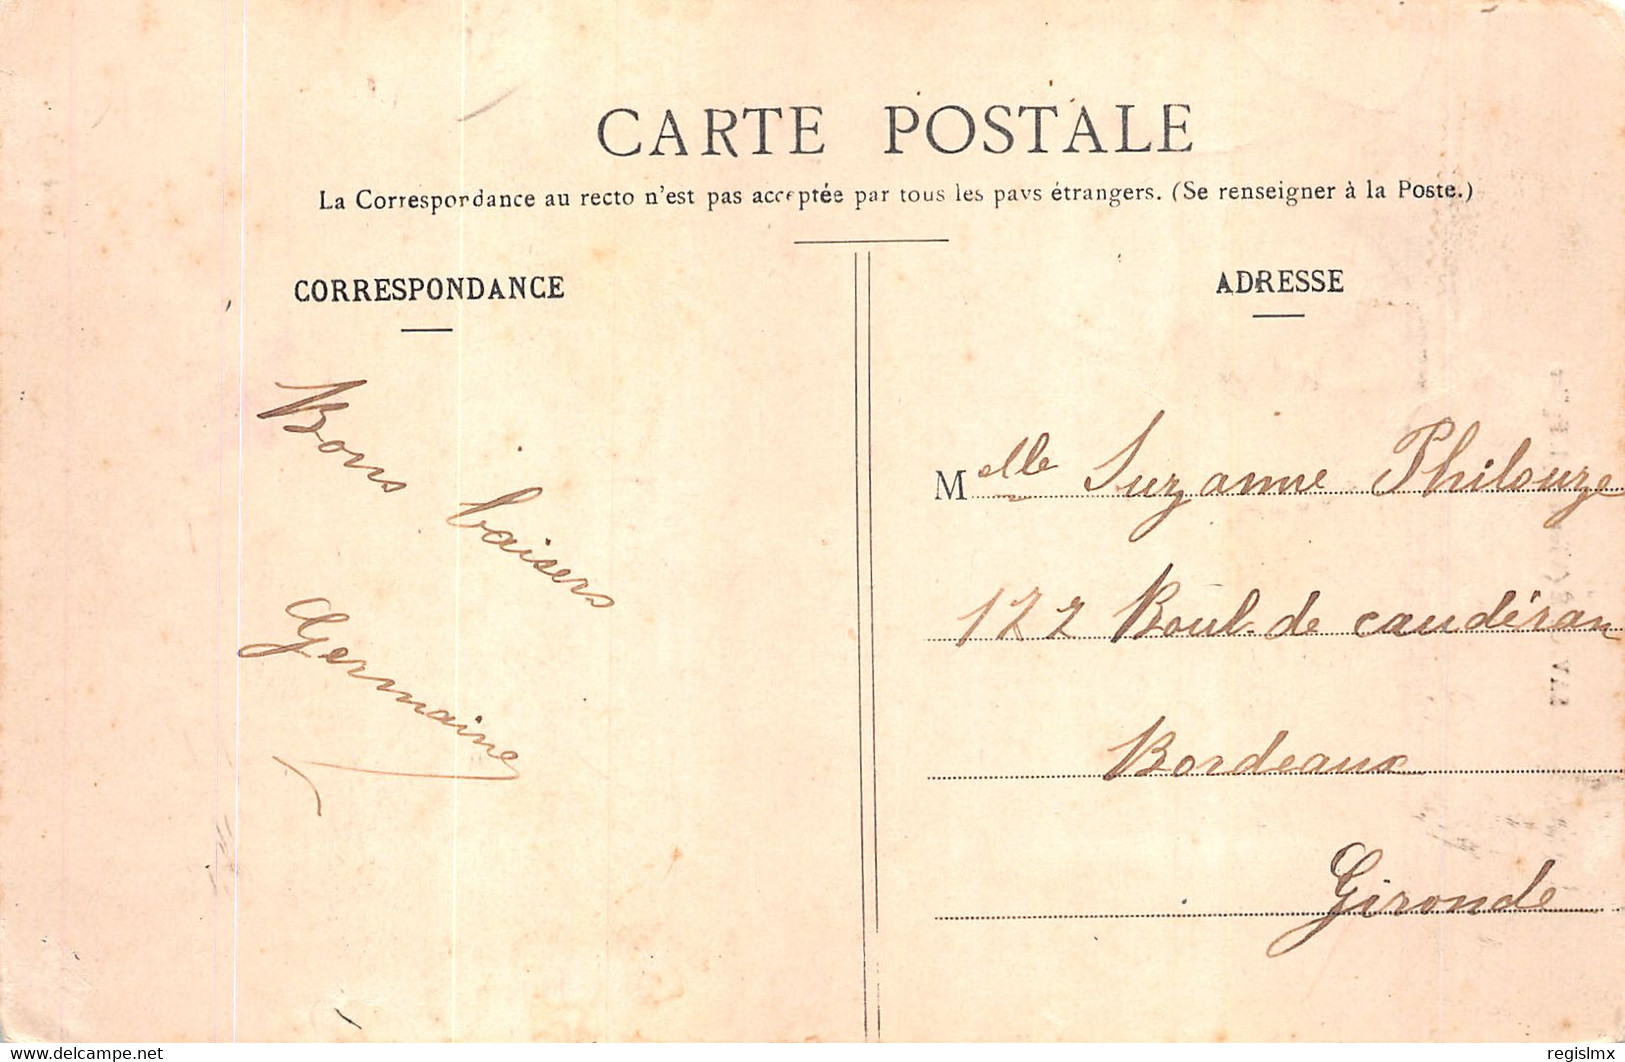 CARTE POSTALE
La Correspondance au recto n'est pas acceptée par tous les pays étrangers. (Se renseigner à la Poste.)
CORRESPONDANCE
Bons baisers
Germaine
ADRESSE
Melle Suzanne Philouze
122 Boul. de caudéran
Bordeaux
Gironde
www.delcampe.net
regislmx